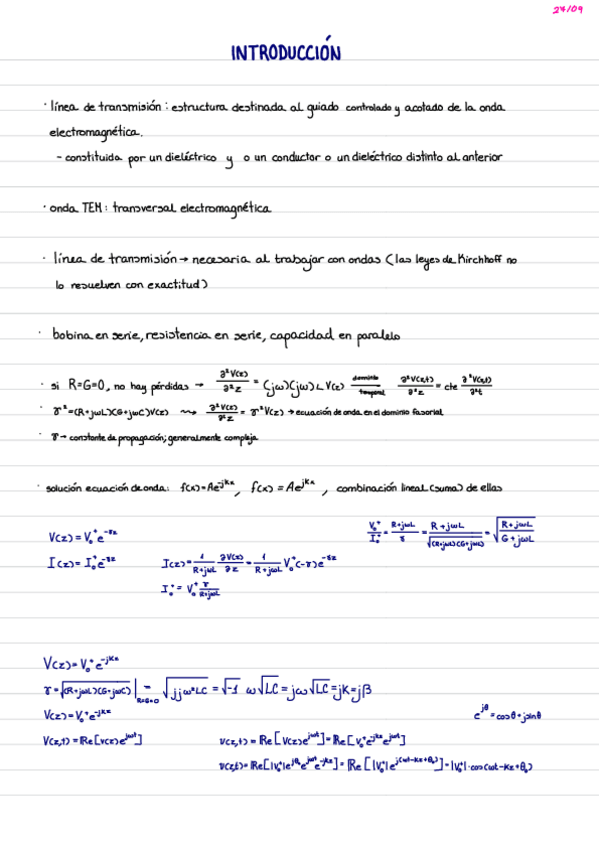 27/09
INTRODUCCIÓN
· línea de transmisión : estructura destinada al guiado controlado y acotado de la onda
electromagnética.
- constituida por un dieléctrico y o un conductor o un dieléctrico distinto al anterior
· onda TEM : transversal electromagnética
· línea de transmisión → necesaria al trabajar con ondas (las leyes de Kirchhoff no
lo resuelven con exactitud)
· bobina en serie, resistencia en serie, capacidad en paralelo
· si R=G=0, no hay pérdidas → ∂²V(z)/∂²z = (jω)(jω)L V(z) dominio temporal → ∂²V(z,t)/∂²z = cte ∂²V(z,t)/∂²t
· γ²=(R+jωL)(G+jωC)V(z) ⇝ ∂²V(z)/∂²z = γ²V(z) → ecuación de onda en el dominio fasorial
· γ → constante de propagación; generalmente compleja
· solución ecuación de onda: f(x)=Ae^jkx, f(x)=Ae^jkx, combinación lineal (suma) de ellas
V(z)=V₀⁺e^-γz V₀⁺/I₀⁺ = R+jωL/γ = R+jωL/√(R+jωL)(G+jωL) = √R+jωL/G+jωL
I(z)=I₀⁺e^-γz I(z)= 1/R+jωL ∂V(z)/∂z = 1/R+jωL V₀⁺(-γ)e^-γz
I₀⁺ = V₀⁺ γ/R+jωL
V(z)=V₀⁺e^-jkz
γ=√(R+jωL)(G+jωC)|R=G=0 = √jjω²LC = √-1 ω√LC = jω√LC = jk = jβ
V(z)=V₀⁺e^-jkz e^jθ = cosθ+jsinθ
V(z,t)=Re[V(z)e^jωt] v(z,t)=Re[V(z)e^jωt]=Re[V₀⁺e^-jkz e^jωt]
v(z,t)=Re[|V₀⁺|e^jθ₀ e^jωt e^-jkz]=Re[|V₀⁺|e^j(ωt-kz+θ₀)]=|V₀⁺|·cos(ωt-kz+θ₀)